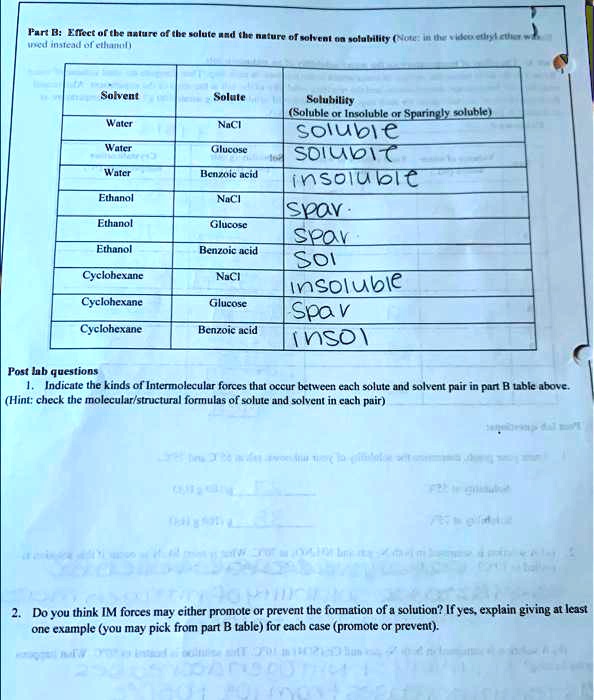 Part B: Effect of the nature of the solute and the nature of solvent on solubility (Note: in the video ethyl ether was
used instead of ethanol)
Solvent Solute Solubility
(Soluble or Insoluble or Sparingly soluble)
Water NaCl soluble
Water Glucose soluble
Water Benzoic acid insoluble
Ethanol NaCl Spar.
Ethanol Glucose Spar.
Ethanol Benzoic acid Sol
Cyclohexane NaCl insoluble
Cyclohexane Glucose Spar
Cyclohexane Benzoic acid insol
Post lab questions
1. Indicate the kinds of Intermolecular forces that occur between each solute and solvent pair in part B table above.
(Hint: check the molecular/structural formulas of solute and solvent in each pair)
2. Do you think IM forces may either promote or prevent the formation of a solution? If yes, explain giving at least
one example (you may pick from part B table) for each case (promote or prevent).